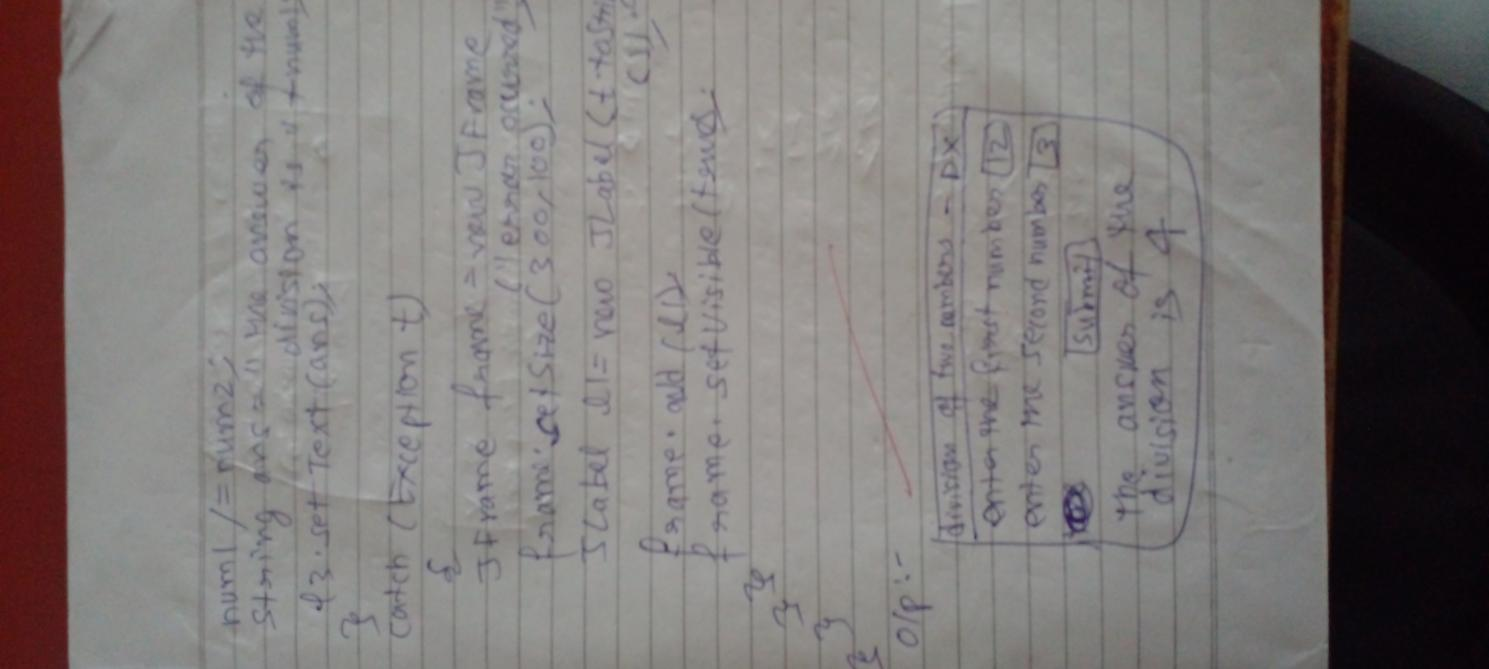 num1 /= num2;
string ans = "the answer of the
division is " + num1
l3.setText(ans);
}
catch (Exception t)
{
JFrame frame = new JFrame
("error occurred"
frame.setSize(300,100);
JLabel l1 = new JLabel(t.toStri
frame.add(l1)
frame.setVisible(true);
}
}
}
}
O/p :-
division of two numbers - □ X
enter the first number 12
enter the second number 3
submit
the answer of the
division is 4